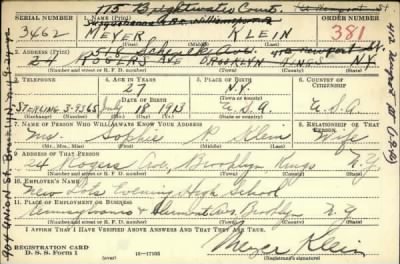 115 Brightwater Court.
SERIAL NUMBER
ORDER NUMBER
3462
MEYER KLEIN
381
2. ADDRESS (Print)
24 ROGERS AVE BROOKLYN KINGS N.Y.
3. TELEPHONE
4. AGE IN YEARS
5. PLACE OF BIRTH
6. COUNTRY OF CITIZENSHIP
27
N.Y.
STerling 3-9565
July 18 1913
U.S.A.
U.S.A.
7. NAME OF PERSON WHO WILL ALWAYS KNOW YOUR ADDRESS
8. RELATIONSHIP OF THAT PERSON
Mrs. Sophie R. Klein
Wife
(Mr., Mrs., Miss) (First) (Middle) (Last)
9. ADDRESS OF THAT PERSON
24 Rogers Ave, Brooklyn Kings N.Y.
10. EMPLOYER'S NAME
New Lots Evening High School
11. PLACE OF EMPLOYMENT OR BUSINESS
Pennsylvania & Dumont Aves Brooklyn N.Y.
I AFFIRM THAT I HAVE VERIFIED ABOVE ANSWERS AND THAT THEY ARE TRUE.
REGISTRATION CARD
D. S. S. Form 1
(over)
16—17105
Meyer Klein
(Registrant's signature)